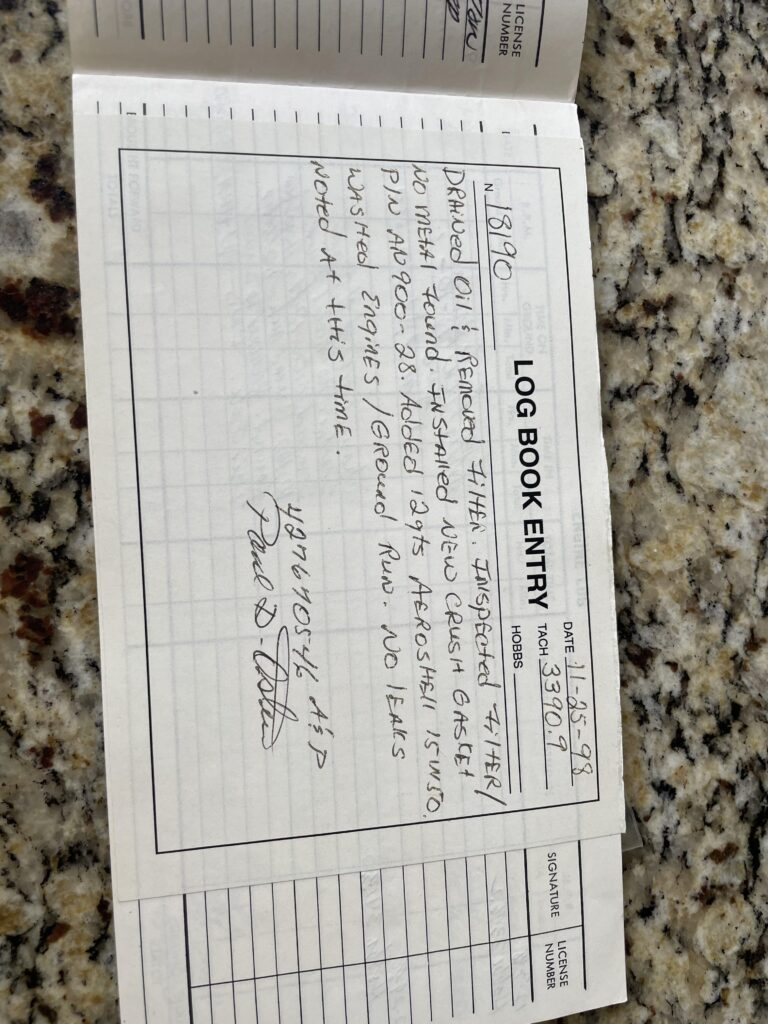 LICENSE
NUMBER
LOG BOOK ENTRY
DATE 11-25-98
TACH 3390.9
N 18190
HOBBS
DRAINED OIL & REMOVED FILTER. INSPECTED FILTER/
NO METAL FOUND. INSTALLED NEW CRUSH GASKET
P/N AN900-28. Added 12qts AEROSHELL 15W50.
WASHED ENGINES / GROUND RUN. NO LEAKS
NOTED At tHIS tIME.
427670546 A&P
Paul D.
SIGNATURE
LICENSE
NUMBER